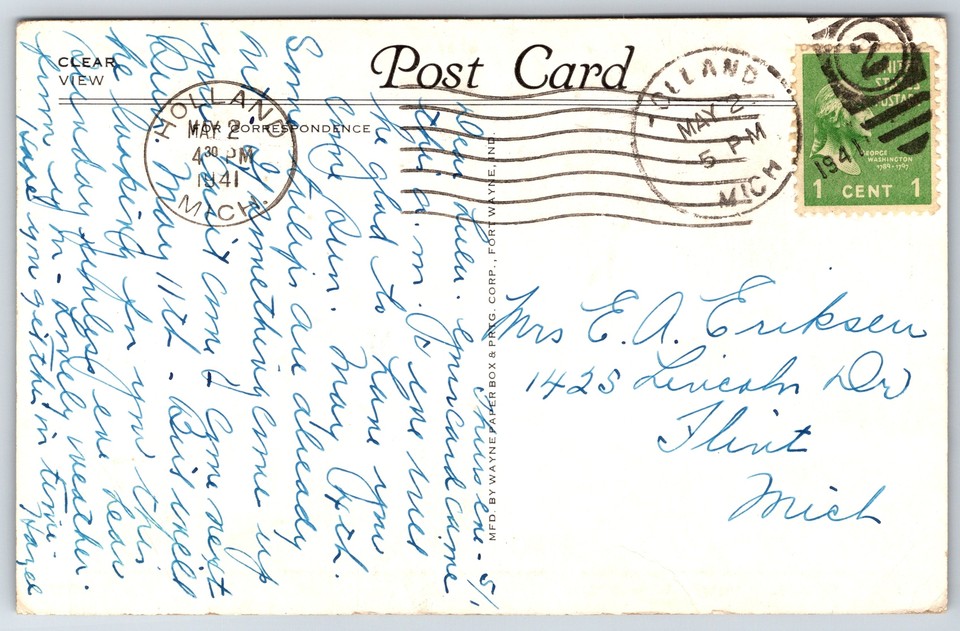 CLEAR
VIEW
Post Card
FOR CORRESPONDENCE
HOLLAND
MAY 2
4 30 PM
1941
MICH.
HOLLAND
MAY 2
5 PM
1941
MICH
2
UNITED
STATES
POSTAGE
GEORGE
WASHINGTON
1789-1797
1 CENT 1
MFD. BY WAYNE PAPER BOX & PRTG. CORP., FORT WAYNE, IND.
Thurs eve - 5/1
Dear Lulu. Your card came
this a.m.
be glad to have you
come Sun. May
Some tulips are already
something came up
come next
Sun May 11th. But will
be looking for you this
Sunday unless we hear
from you - lovely weather.
you get this in time.
Hazel
Mrs E. A. Eriksen
1425 Lincoln Dr
Flint
Mich